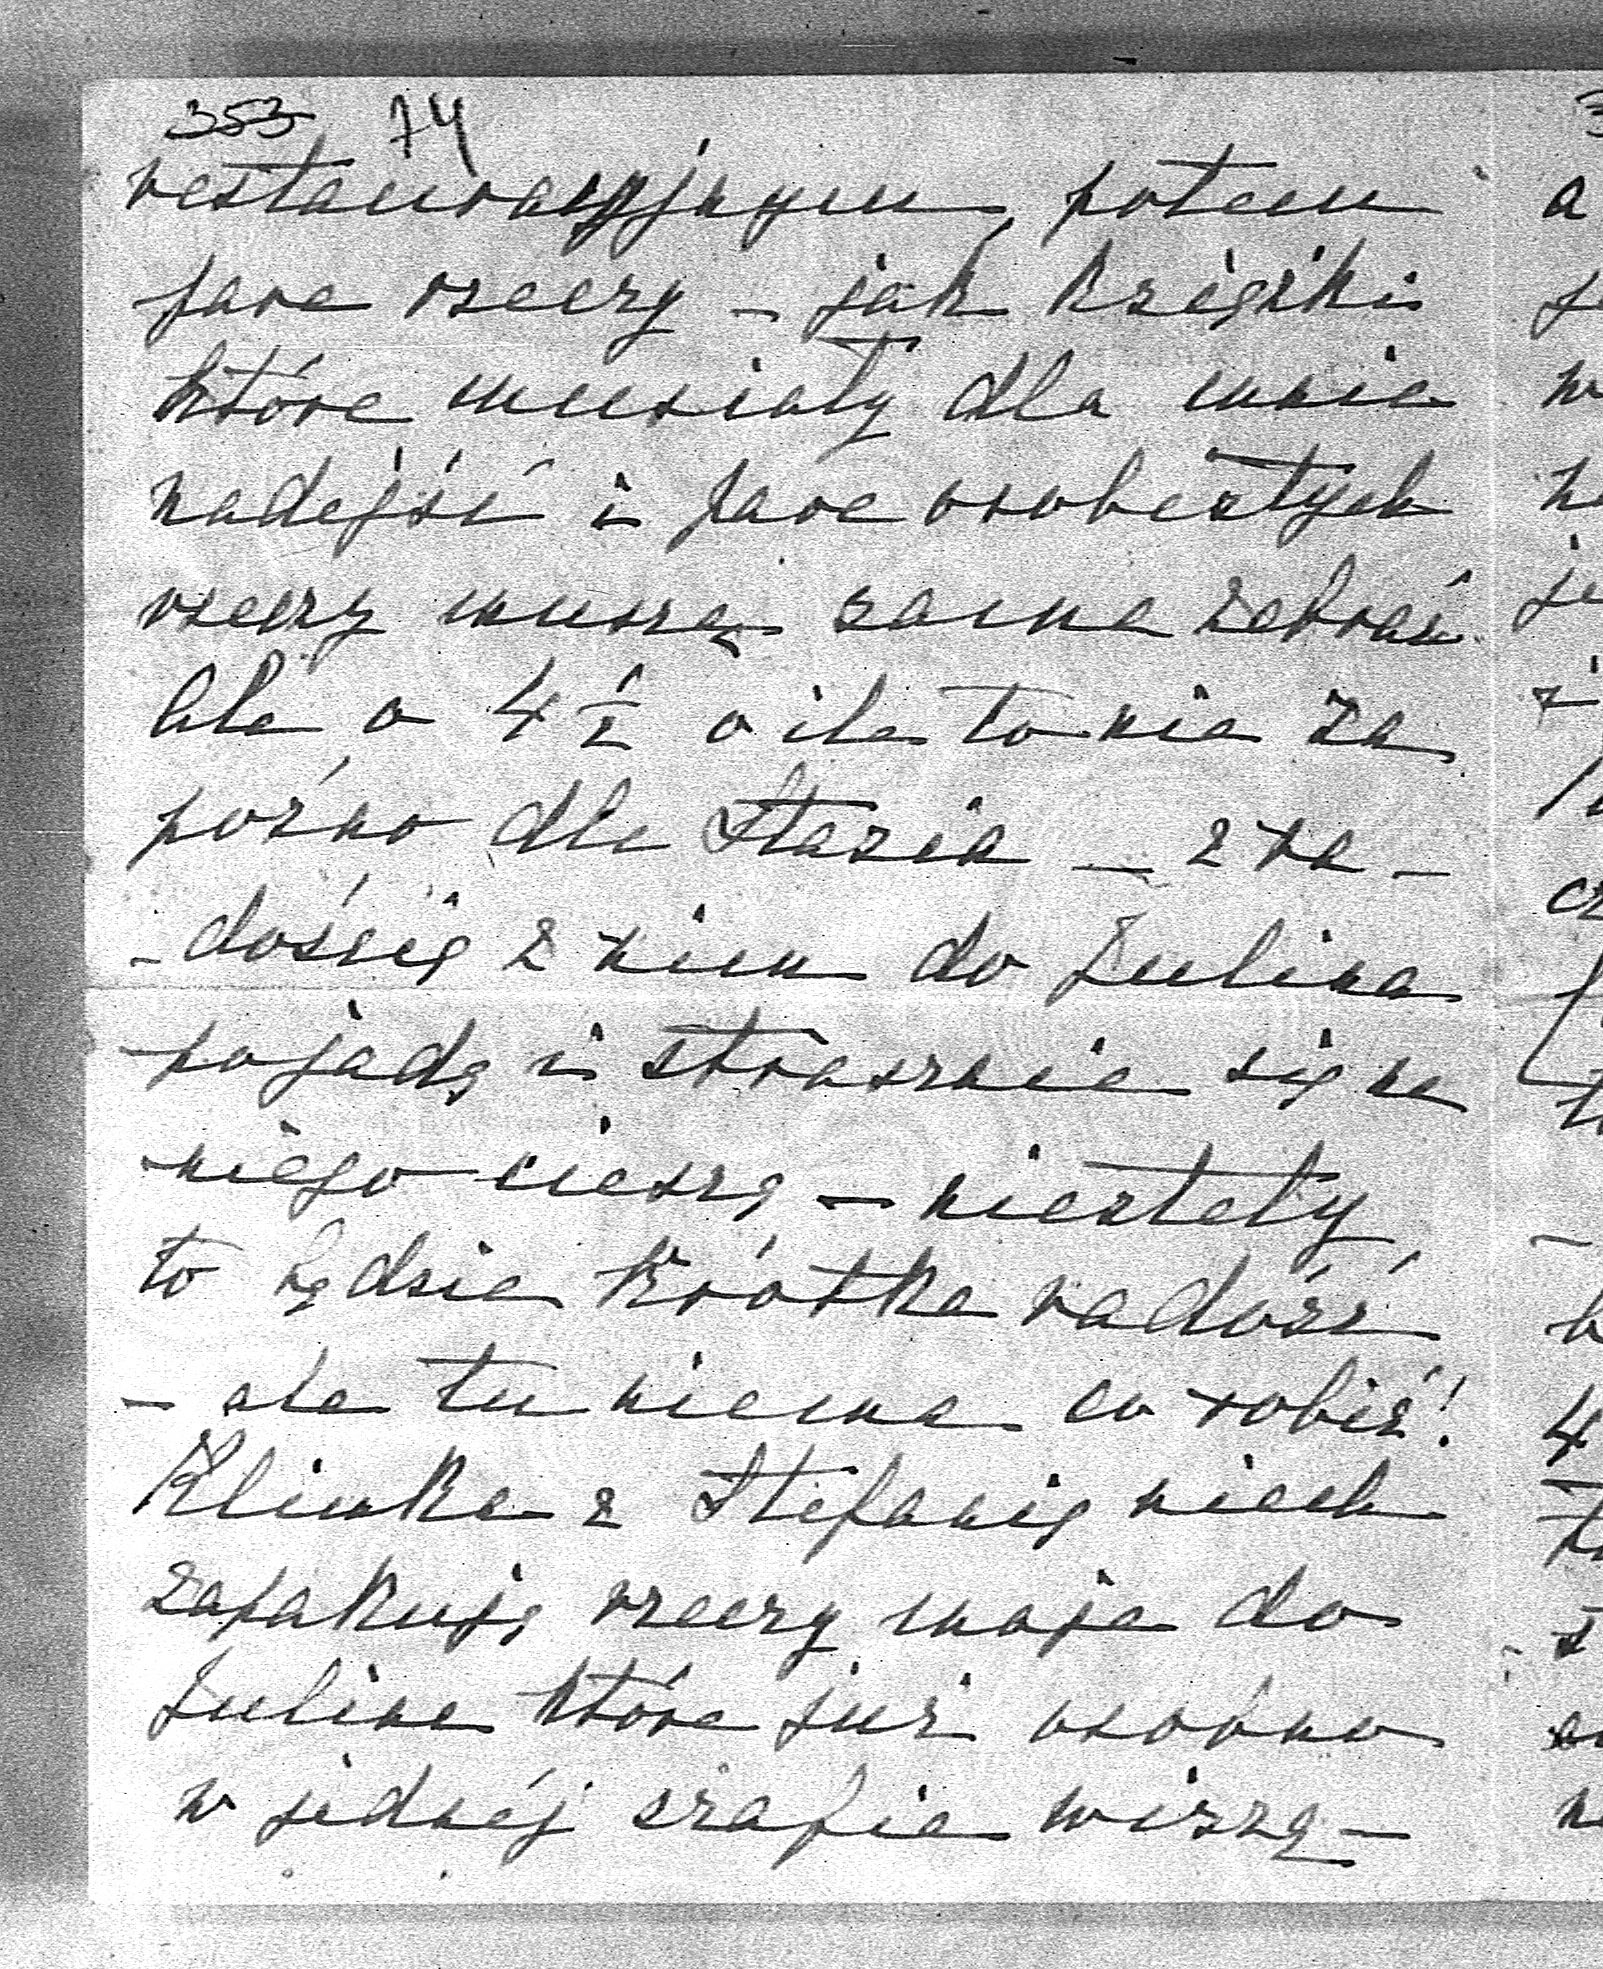 353 74
restauracyjnym, potem
pare rzeczy – jak książki
które musiały dla mnie
nadejść i pare osobistych
rzeczy muszę sama zebrać
Ale o 4 ½ o ile to nie za
poźno dla Stasia – z ra-
-dością z nim do Żulina
pojadę i strasznie się na
niego cieszę – niestety
to będzie krótka radość
– ale tu niema co robić!
Klimka z Stefanią niech
zapakują rzeczy moje do
Żulina które już osobno
w jednéj szafie wiszą –